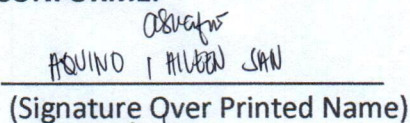 AQUINO, AILEEN SAN
(Signature Over Printed Name)